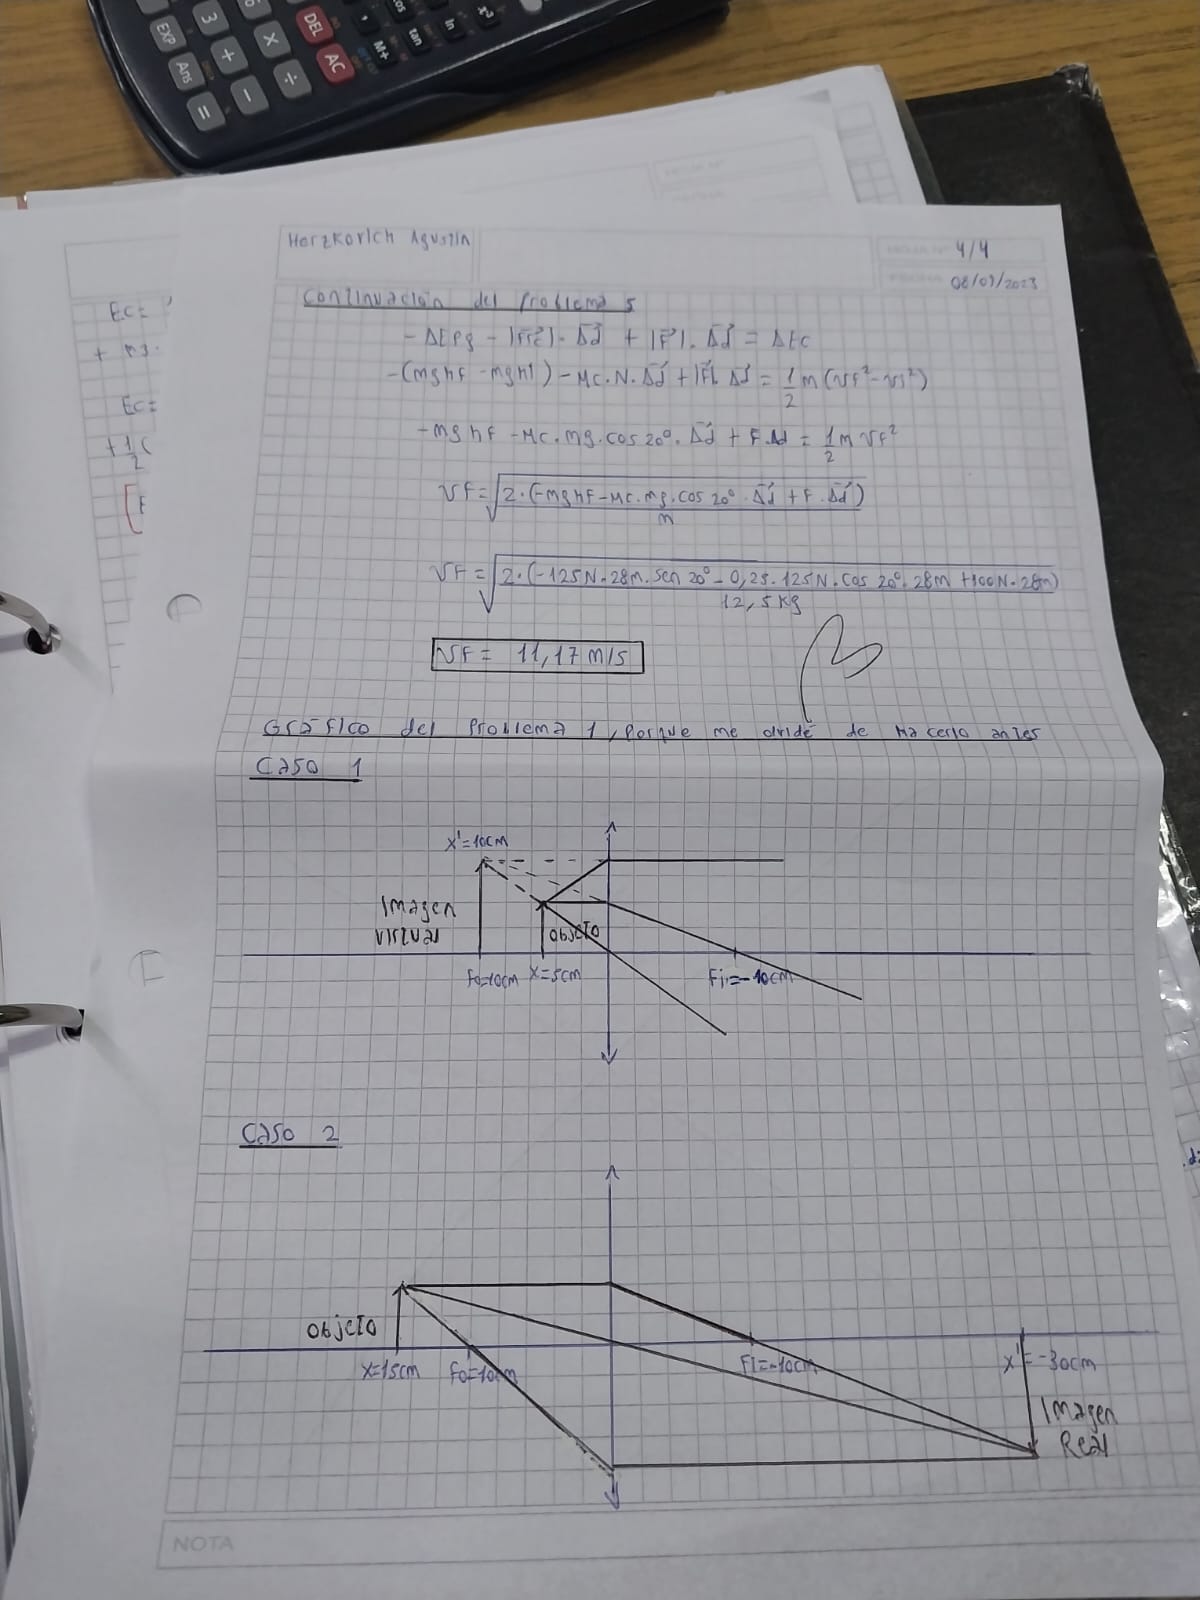 3
DEL
cos
tan
ln
x³
EXP
+
×
AC
M+
Ans
−
÷
=
Herzkorich Agustín
HOJA Nº 4/4
FECHA 08/07/2023
Ec=
+ mg.
Ec=
+ 1/2 (
Continuación del Problema 5
- ΔEpg - |Frc|. Δd + |F|. Δd = ΔEc
-(mghf - mghi) - Mc. N. Δd + |F|. Δd = 1/2 m (vf² - vi²)
-mghf - Mc. mg. cos 20°. Δd + F. Δd = 1/2 m vf²
vf = √(2. (-mghf - Mc. mg. cos 20°. Δd + F. Δd) / m)
vf = √(2. (-125N. 28m. sen 20° - 0,25. 125N. cos 20°. 28m + 100N. 28m) / 12,5Kg)
vf = 11,17 m/s
Gráfico del Problema 1, Porque me olvidé de Hacerlo antes
Caso 1
x'=10cm
Imagen
virtual
objeto
fo=10cm x=5cm Fi=-10cm
Caso 2
objeto
x=15cm fo=10cm Fi=-10cm x'=-30cm
Imagen
Real
NOTA